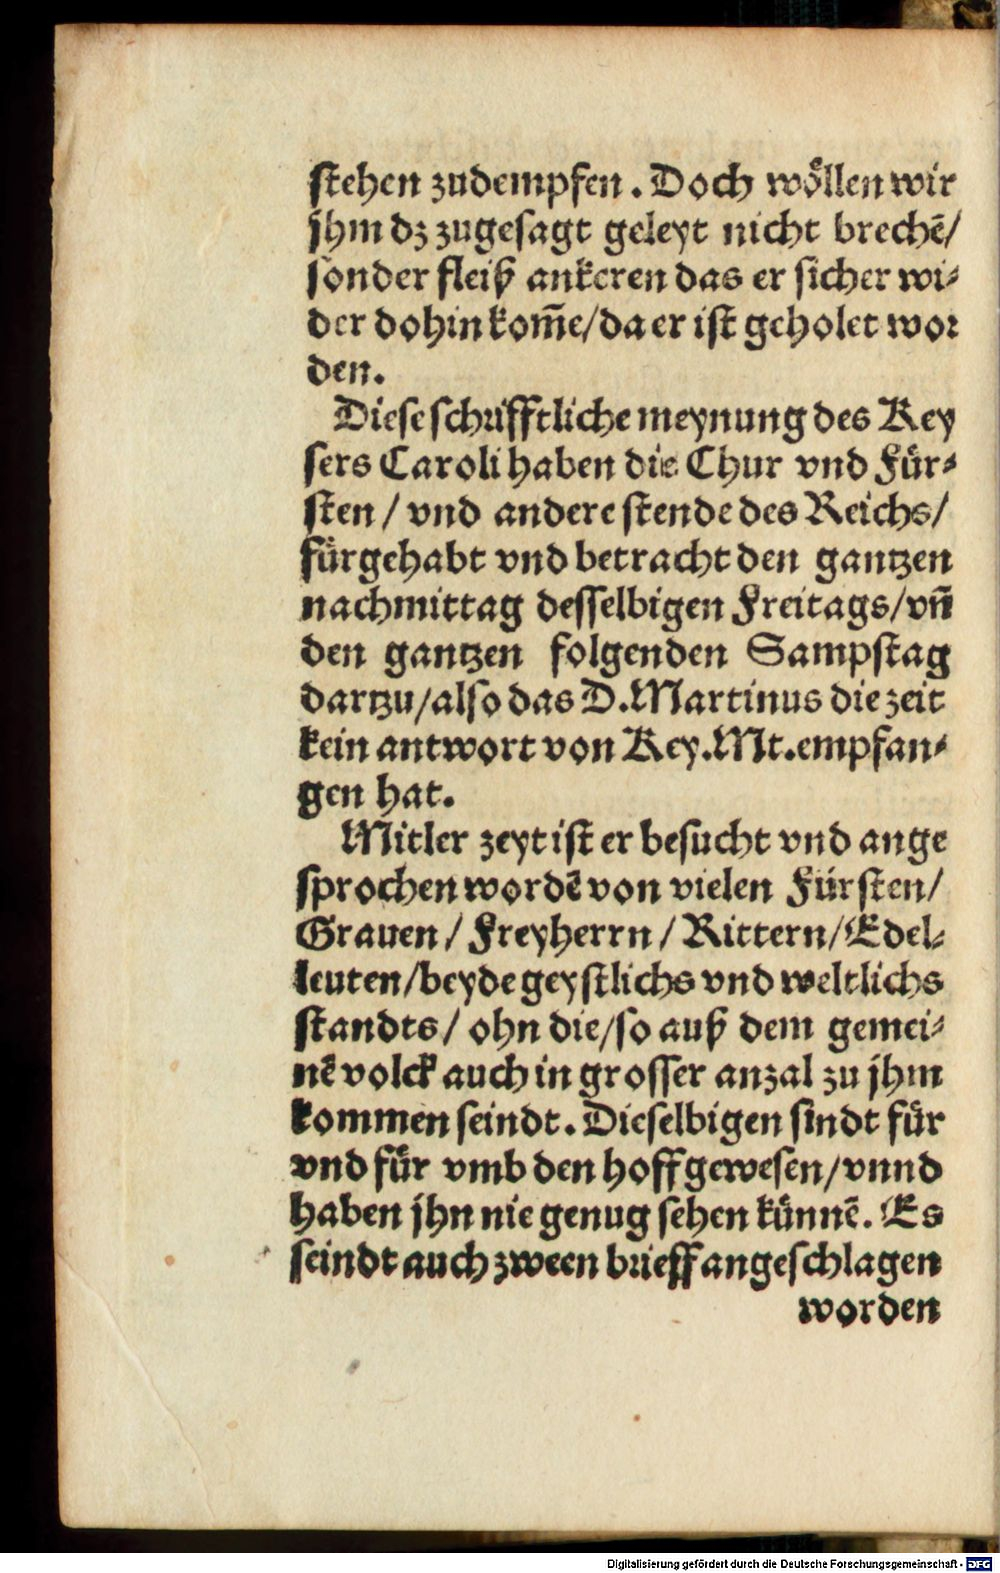 stehen zudempfen. Doch wöllen wir
jhm dz zugesagt geleyt nicht brechē/
sonder fleiß ankeren das er sicher wi-
der dohin kom̄e/da er ist geholet wor
den.
Diese schrifftliche meynung des Key
sers Caroli haben die Chur vnd Für-
sten / vnd andere stende des Reichs/
fürgehabt vnd betracht den gantzen
nachmittag desselbigen Freitags/vn̄
den gantzen folgenden Sampstag
dartzu/also das D.Martinus die zeit
kein antwort von Key.Mt.empfan-
gen hat.
Mitler zeyt ist er besucht vnd ange
sprochen wordē von vielen Fürsten/
Grauen / Freyherrn / Rittern/Edel-
leuten/beyde geystlichs vnd weltlichs
standts/ ohn die/so auß dem gemei-
nē volck auch in grosser anzal zu jhm
kommen seindt. Dieselbigen sindt für
vnd für vmb den hoff gewesen/vnnd
haben jhn nie genug sehen künnē. Es
seindt auch zween brieff angeschlagen
worden
Digitalisierung gefördert durch die Deutsche Forschungsgemeinschaft - DFG